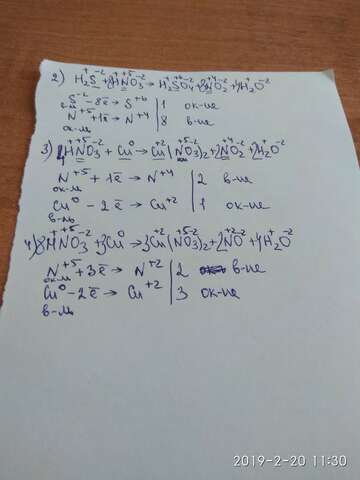 2) H₂⁺S⁻² + 8H⁺N⁺⁵O₃⁻² → H₂⁺S⁺⁶O₄⁻² + 8N⁺⁴O₂⁻² + 4H₂⁺O⁻²
S⁻² - 8ē → S⁺⁶ | 1 ок-ие
в-ль
N⁺⁵ + 1ē → N⁺⁴ | 8 в-ие
ок-ль
3) 4H⁺N⁺⁵O₃⁻² + Cu⁰ → Cu⁺²(N⁺⁵O₃⁻²)₂ + 2N⁺⁴O₂⁻² + 2H₂⁺O⁻²
N⁺⁵ + 1ē → N⁺⁴ | 2 в-ие
ок-ль
Cu⁰ - 2ē → Cu⁺² | 1 ок-ие
в-ль
4) 8H⁺N⁺⁵O₃⁻² + 3Cu⁰ → 3Cu⁺²(N⁺⁵O₃⁻²)₂ + 2N⁺²O⁻² + 4H₂⁺O⁻²
N⁺⁵ + 3ē → N⁺² | 2 в-ие
ок-ль
Cu⁰ - 2ē → Cu⁺² | 3 ок-ие
в-ль
2019-2-20 11:30